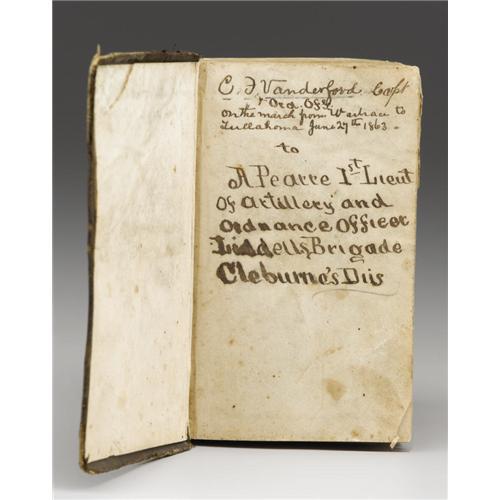 C. F. Vanderford Capt
& Ord. Offr
on the march from Wartrace to
Tullahoma June 27th 1863 -
to
A Pearre 1st Lieut
Of Artillery and
Ordnance Officer
Liddells Brigade
Cleburne's Divis